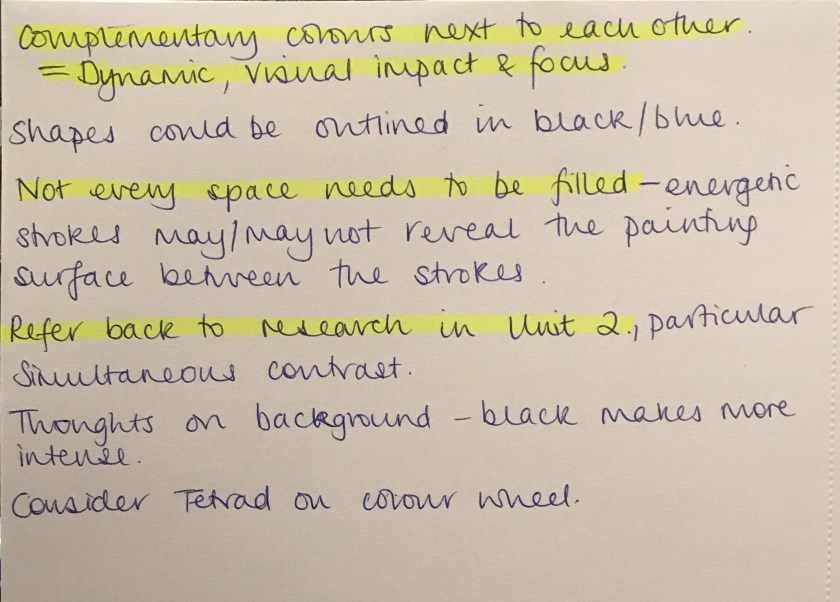 Complementary colours next to each other.
= Dynamic, visual impact & focus.
Shapes could be outlined in black/blue.
Not every space needs to be filled - energetic
strokes may/may not reveal the painting
surface between the strokes.
Refer back to research in Unit 2., particular
Simultaneous contrast.
Thoughts on background - black makes more
intense.
Consider Tetrad on colour wheel.